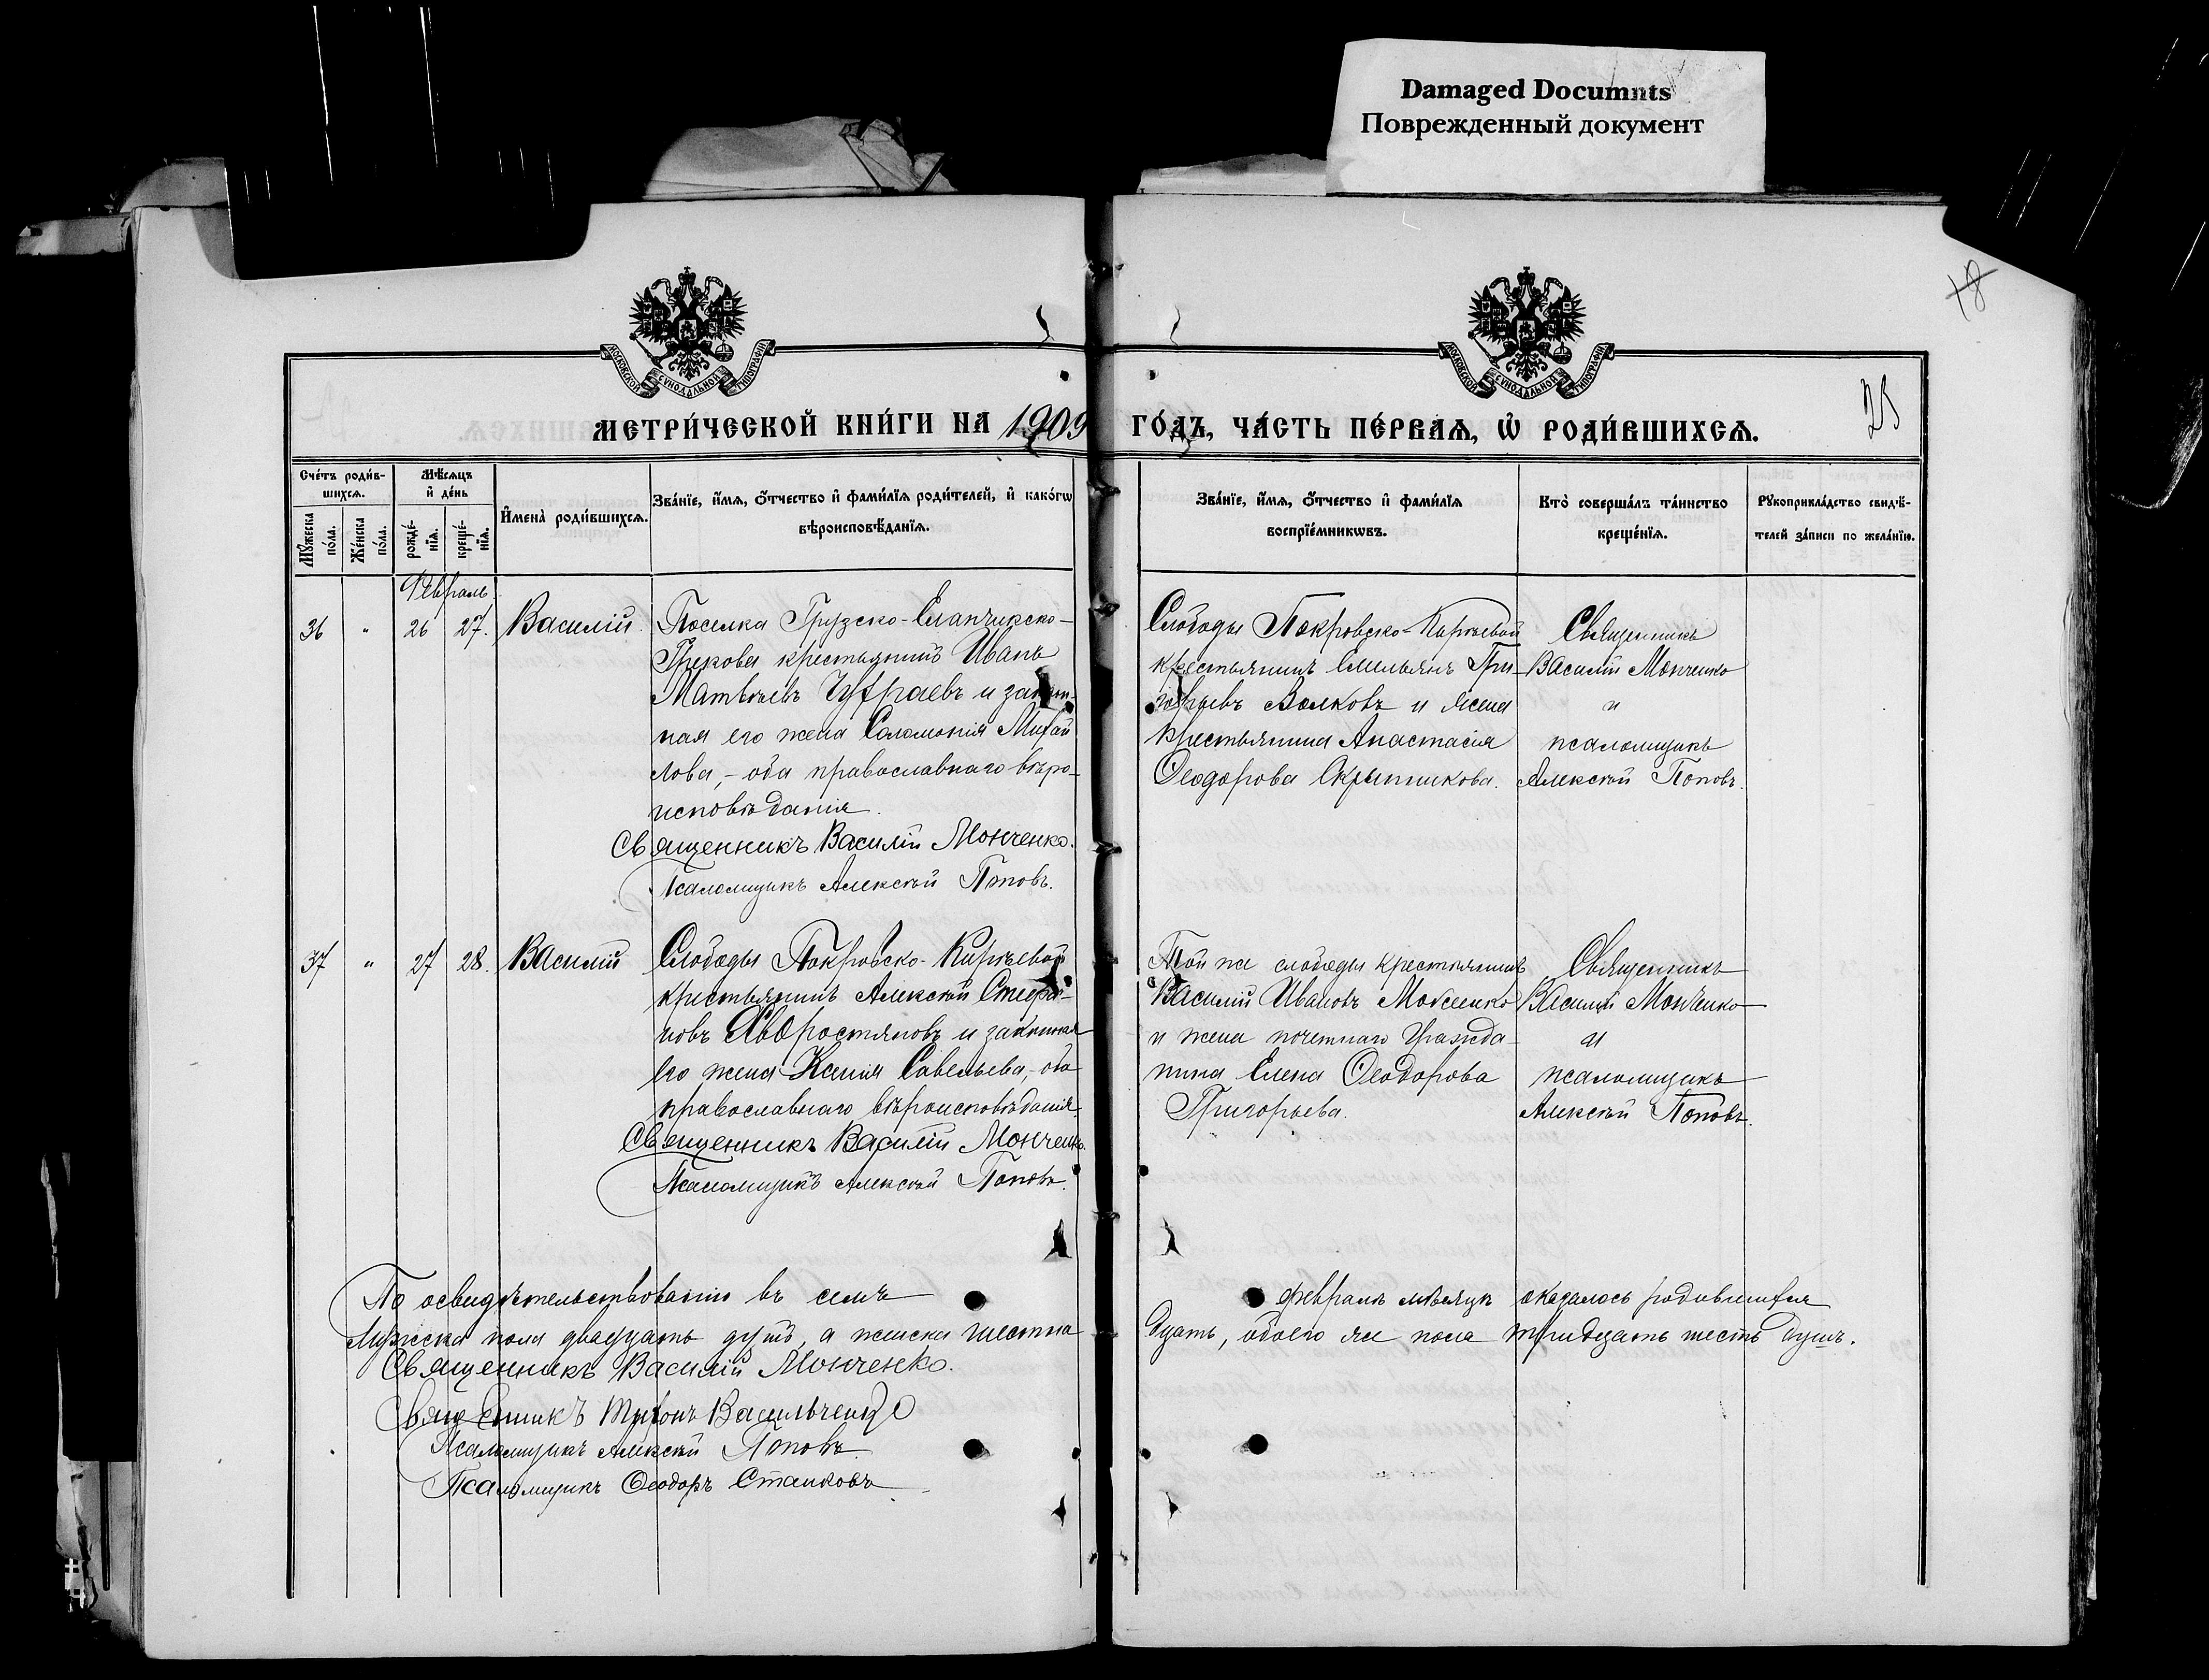 Damaged Documnts
Поврежденный документ
18
25
МОСКОВСКОЙ СѴНОДАЛЬНОЙ ТИПОГРАФІИ
МОСКОВСКОЙ СѴНОДАЛЬНОЙ ТИПОГРАФІИ
МЕТРИ́ЧЕСКОЙ КНИ́ГИ НА 1909 ГО́ДЪ, ЧА́СТЬ ПЕ́РВАѦ, Ѡ҆ РОДИ́ВШИХСѦ.
Сче́тъ роди́в-
шихсѧ.
Мꙋ́жеска
по́ла.
Же́нска
по́ла.
Мѣ́сѧцъ
и҆ де́нь
рожде́-
нїѧ.
креще́-
нїѧ.
И҆мена̀ роди́вшихсѧ.
Зва́нїе, и҆́мѧ, ѻ҆́тчество и҆ фами́лїѧ роди́телей, и҆ како́гѡ
вѣроисповѣ́данїѧ.
Зва́нїе, и҆́мѧ, ѻ҆́тчество и҆ фами́лїѧ
воспрїе́мникѡвъ.
Кто̀ соверша́лъ та́инство
креще́нїѧ.
Рꙋкоприкла́дство свидѣ́-
телей за́писи по жела́нїю.
Февраль
36 " 26 27. Василій.
Поселка Грузско-Еланчикско-
Грекова крестьянинъ Иванъ
Матвѣевъ и закон-
ная его жена Соломонія Михай
лова, – оба православнаго вѣро-
исповѣданія.
Священникъ Василій Монченко.
Псаломщикъ Алексѣй Поповъ.
Слободы Покровско-Кирѣевой
крестьянинъ Емельянъ Гри-
горьевъ Волковъ и жена
крестьянина Анастасія
Ѳеодорова Скрынникова.
Священникъ
Василій Монченко
и
псаломщикъ
Алексѣй Поповъ.
37 " 27 28. Василій
Слободы Покровско-Кирѣевой
крестьянинъ Алексѣй Стефа-
новъ и законная
его жена Ксенія Савельева, – оба
православнаго вѣроисповѣданія.
Священникъ Василій Монченко.
Псаломщикъ Алексѣй Поповъ.
Той же слободы крестьянинъ
Василій Ивановъ
и жена почетнаго гражда-
нина Елена Ѳеодорова
Григорьева.
Священникъ
Василій Монченко
и
псаломщикъ
Алексѣй Поповъ.
По освидѣтельствованію въ семъ февралѣ мѣсяцѣ оказалось родившихся
Мужеска пола двадцать душъ, а женска шестна
дцать, обоего же пола тридцать шесть душъ.
Священникъ Василій Монченко.
Священникъ Трифонъ Васильченко
Псаломщикъ Алексѣй Поповъ.
Псаломщикъ Ѳеодоръ Станковъ